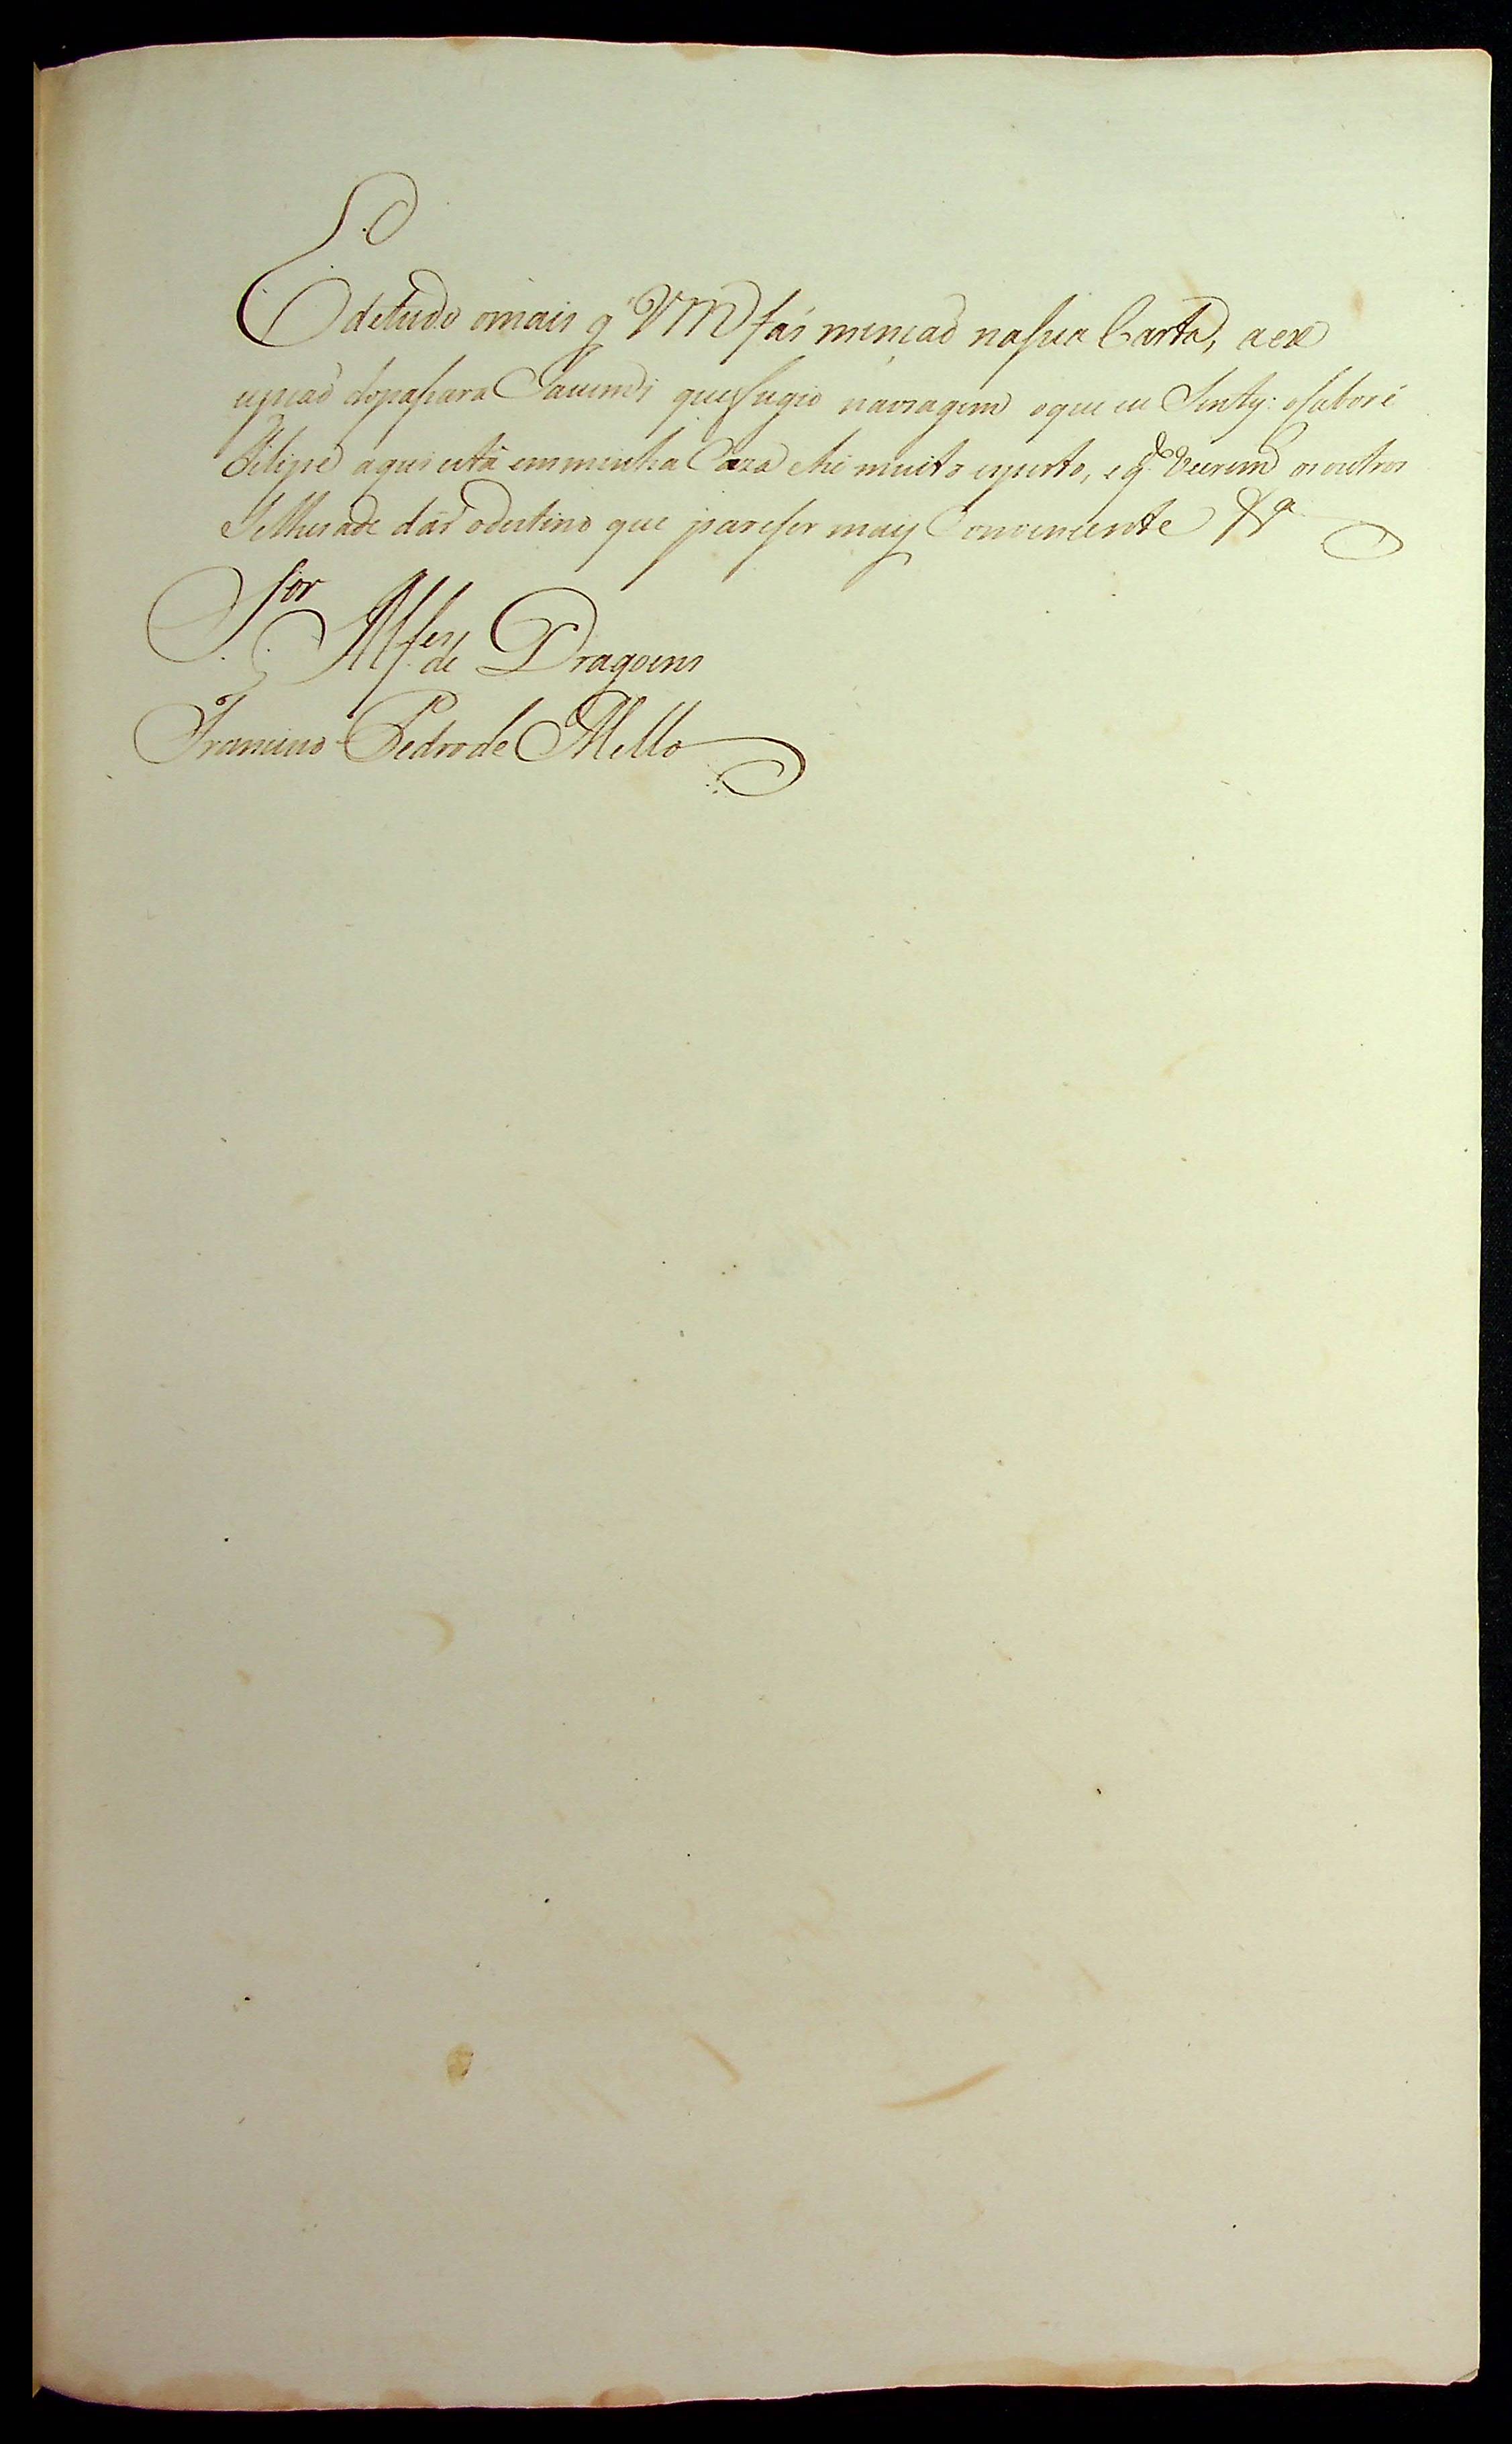 E de tudo omais q' VM fás mençaõ nasua Carta, a ex
cepcaõ dopasara Cauendi quefugio náviagem oque eu Senty: osaboré
Felipe aqui está emminha Caza ehé muito esperto, e q.do Vierem os outros
Selhesade dar odestino que pareser mais Conveniente &a
Sor Alfes de Dragoens
Francisco Pedro de Mello